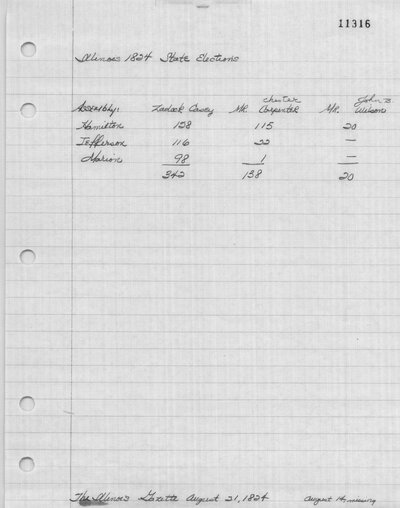 11316
Illinois 1824 State Elections
Chester John B.
Assembly: Zadock Casey Mr. Carpenter Mr. Wilson
Hamilton 128 115 20
Jefferson 116 22 —
Marion 98 1 —
342 138 20
The Illinois Gazette August 21, 1824 August 14, missing